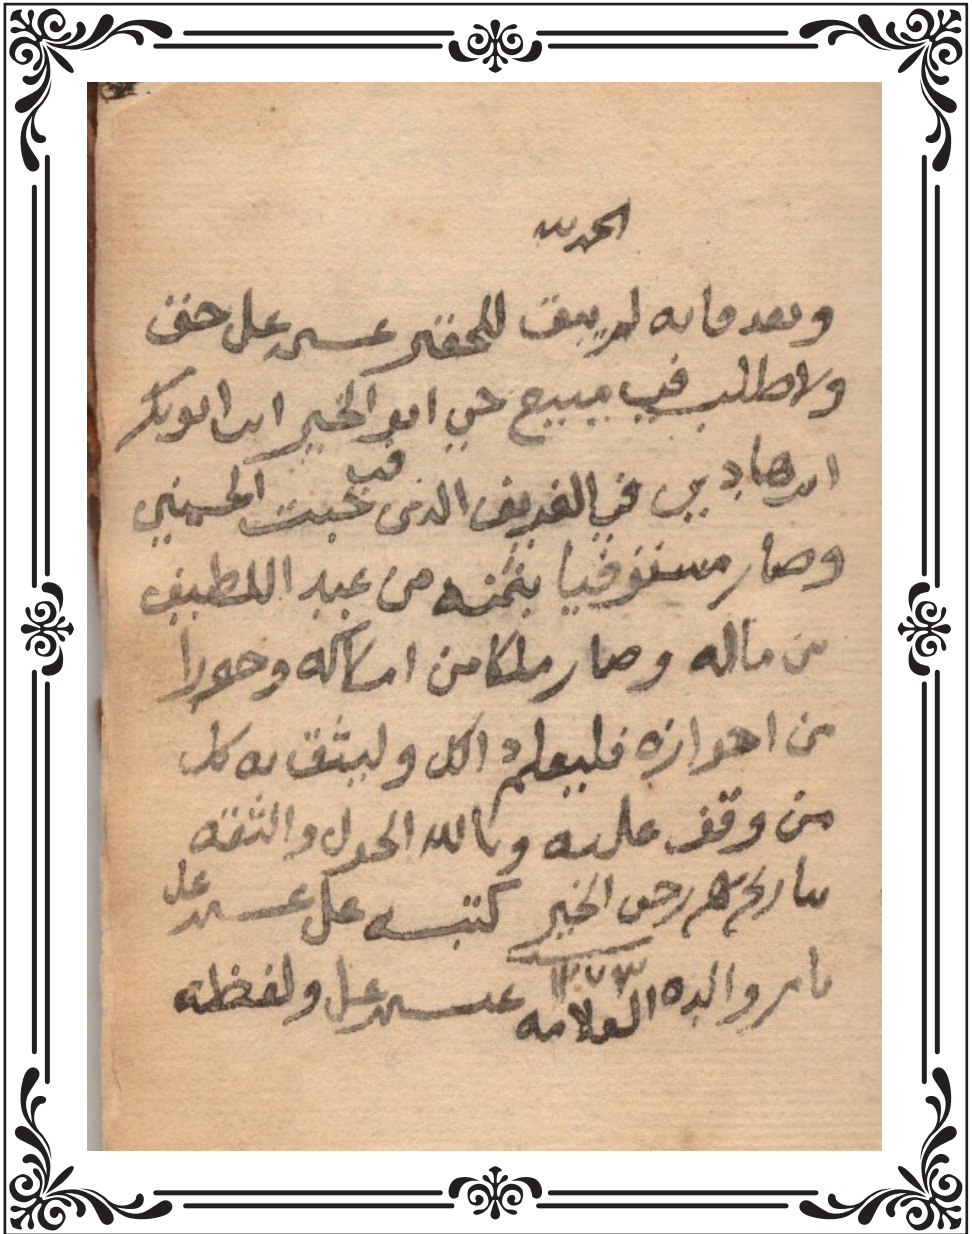 الحمد لله
وبعد فانه لم يبق للحقير عيسى علي حق
ولا طلب في مبيع حي ابو الخير ابن ابو بكر
ابن هادي في الغريف الذي في خبت الحسيني
وصار مستوفيا بثمنه من عبد اللطيف
من ماله وصار ملكا من املاكه وحوزا
من احوازه فليعلم الكل وليثق به كل
من وقف عليه وبالله الحول والثقه
بتاريخ شهر رجب الخير كتبه علي عيسى علي
١٢٧٣
بامر والده العلامه عيسى علي ولفظه